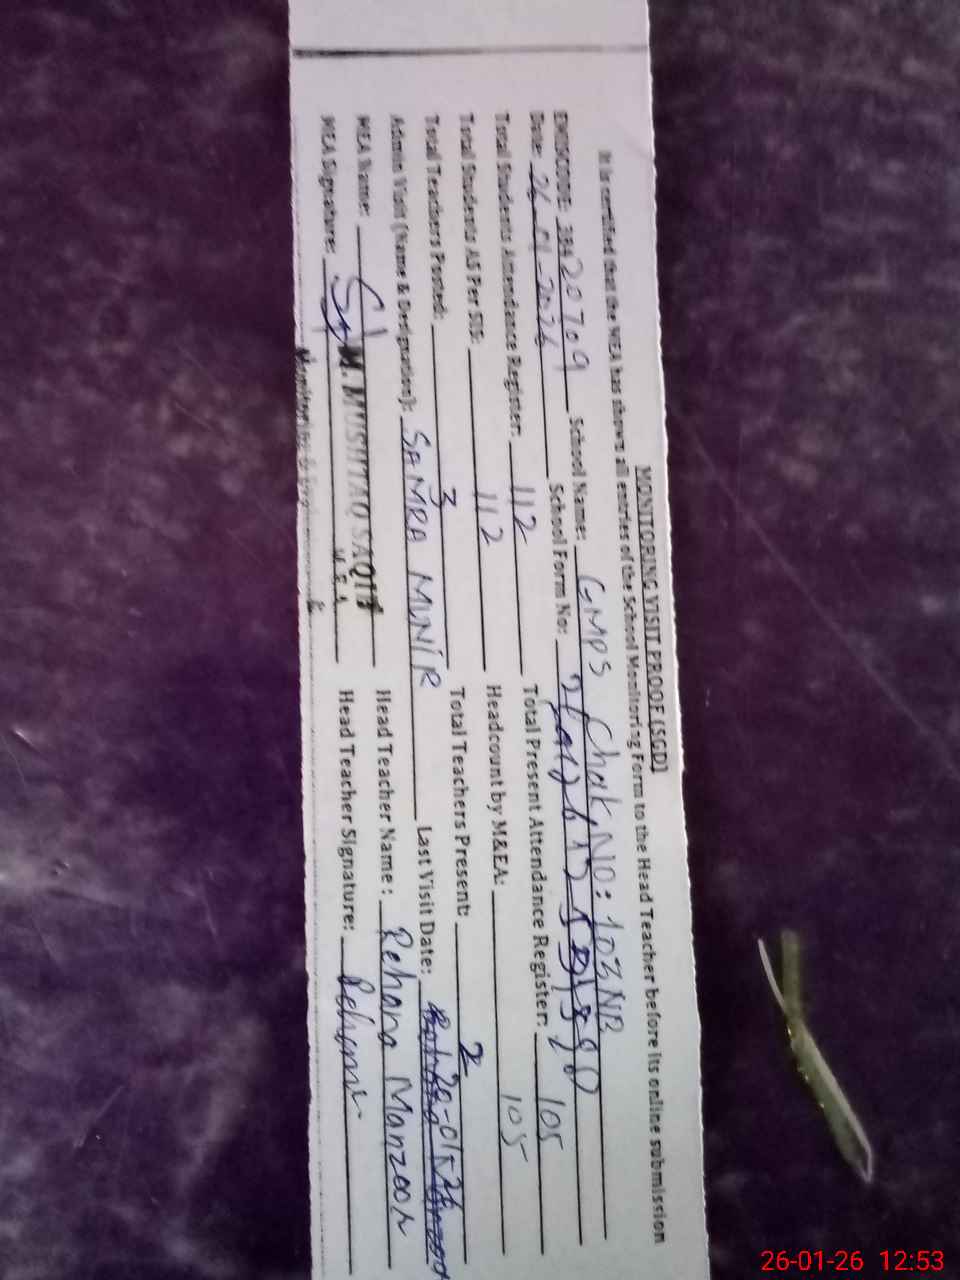 MONITORING VISIT PROOF (SGD)
It is certified that the MEA has shown all entries of the School Monitoring Form to the Head Teacher before its online submission
EMISCODE: 38420709 School Name: GMPS Chak, NO: 103NB
Date: 26-01-2026 School Form No:
Total Students Attendance Register: 112 Total Present Attendance Register: 105
Total Students AS Per SIS: 112 Headcount by M&EA: 105
Total Teachers Posted: 3 Total Teachers Present: 2
Admin Visit (Name & Designation): SAMRA MUNIR Last Visit Date: 20-01-26
MEA Name: M. MUSHTAQ SAQIB Head Teacher Name: Rehana Manzoor
M.E.A
MEA Signature: Head Teacher Signature: Rehana
26-01-26 12:53